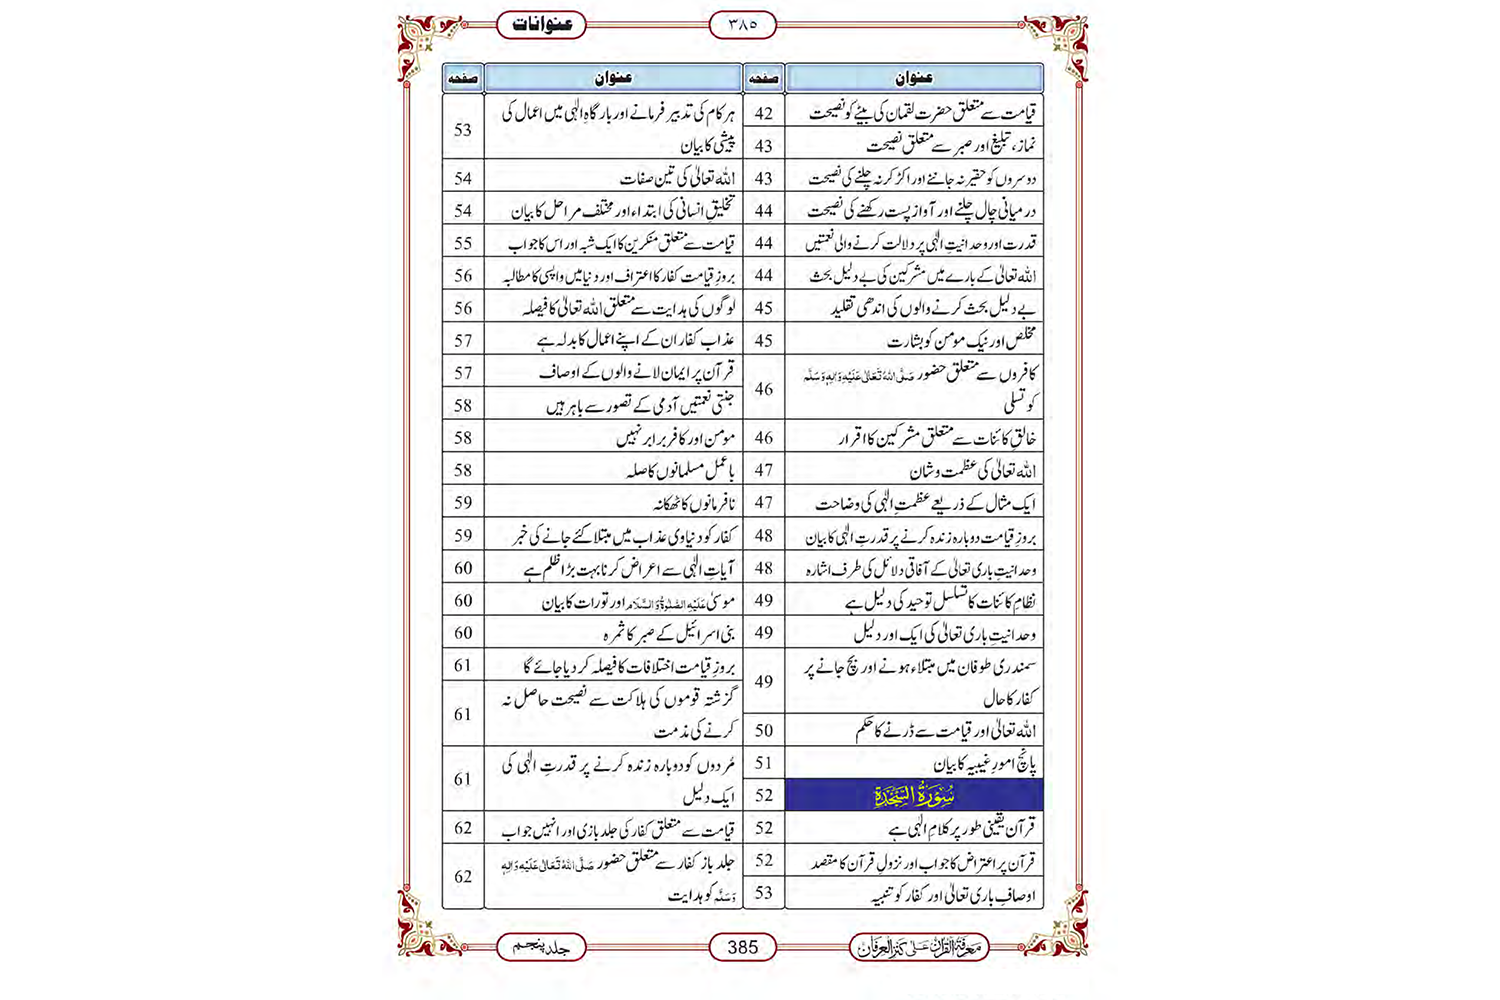 عنوانات
۳۸۵
عنوان صفحہ
قیامت سے متعلق حضرت لقمان کی بیٹے کو نصیحت 42
نماز، تبلیغ اور صبر سے متعلق نصیحت 43
دوسروں کو حقیر نہ جاننے اور اکڑ کر نہ چلنے کی نصیحت 43
درمیانی چال چلنے اور آواز پست رکھنے کی نصیحت 44
قدرت اور وحدانیتِ الٰہی پر دلالت کرنے والی نعمتیں 44
اللہ تعالیٰ کے بارے میں مشرکین کی بے دلیل بحث 44
بے دلیل بحث کرنے والوں کی اندھی تقلید 45
مخلص اور نیک مومن کو بشارت 45
کافروں سے متعلق حضور صَلَّی اللہُ تَعَالٰی عَلَیْہِ وَاٰلِہٖ وَسَلَّمَ
کو تسلی 46
خالقِ کائنات سے متعلق مشرکین کا اقرار 46
اللہ تعالیٰ کی عظمت و شان 47
ایک مثال کے ذریعے عظمتِ الٰہی کی وضاحت 47
بروزِ قیامت دوبارہ زندہ کرنے پر قدرتِ الٰہی کا بیان 48
وحدانیتِ باری تعالیٰ کے آفاقی دلائل کی طرف اشارہ 48
نظامِ کائنات کا تسلسل توحید کی دلیل ہے 49
وحدانیتِ باری تعالیٰ کی ایک اور دلیل 49
سمندری طوفان میں مبتلاء ہونے اور بچ جانے پر
کفار کا حال 49
اللہ تعالیٰ اور قیامت سے ڈرنے کا حکم 50
پانچ امورِ غیبیہ کا بیان 51
سُوْرَۃُ السَّجْدَۃِ 52
قرآن یقینی طور پر کلامِ الٰہی ہے 52
قرآن پر اعتراض کا جواب اور نزولِ قرآن کا مقصد 52
اوصافِ باری تعالیٰ اور کفار کو تنبیہ 53
عنوان صفحہ
ہر کام کی تدبیر فرمانے اور بارگاہِ الٰہی میں اعمال کی
پیشی کا بیان 53
اللہ تعالیٰ کی تین صفات 54
تخلیقِ انسانی کی ابتداء اور مختلف مراحل کا بیان 54
قیامت سے متعلق منکرین کا ایک شبہ اور اس کا جواب 55
بروزِ قیامت کفار کا اعتراف اور دنیا میں واپسی کا مطالبہ 56
لوگوں کی ہدایت سے متعلق اللہ تعالیٰ کا فیصلہ 56
عذاب کفار ان کے اپنے اعمال کا بدلہ ہے 57
قرآن پر ایمان لانے والوں کے اوصاف 57
جنتی نعمتیں آدمی کے تصور سے باہر ہیں 58
مومن اور کافر برابر نہیں 58
باعمل مسلمانوں کا صلہ 58
نافرمانوں کا ٹھکانہ 59
کفار کو دنیاوی عذاب میں مبتلا کئے جانے کی خبر 59
آیاتِ الٰہی سے اعراض کرنا بہت بڑا ظلم ہے 60
موسیٰ عَلَیْہِ الصَّلٰوۃُ وَالسَّلَام اور تورات کا بیان 60
بنی اسرائیل کے صبر کا ثمرہ 60
بروزِ قیامت اختلافات کا فیصلہ کر دیا جائے گا 61
گزشتہ قوموں کی ہلاکت سے نصیحت حاصل نہ
کرنے کی مذمت 61
مُردوں کو دوبارہ زندہ کرنے پر قدرتِ الٰہی کی
ایک دلیل 61
قیامت سے متعلق کفار کی جلد بازی اور انہیں جواب 62
جلد باز کفار سے متعلق حضور صَلَّی اللہُ تَعَالٰی عَلَیْہِ وَاٰلِہٖ
وَسَلَّمَ کو ہدایت 62
معرفۃ القرآن علٰی کنز العرفان
385
جلد پنجم